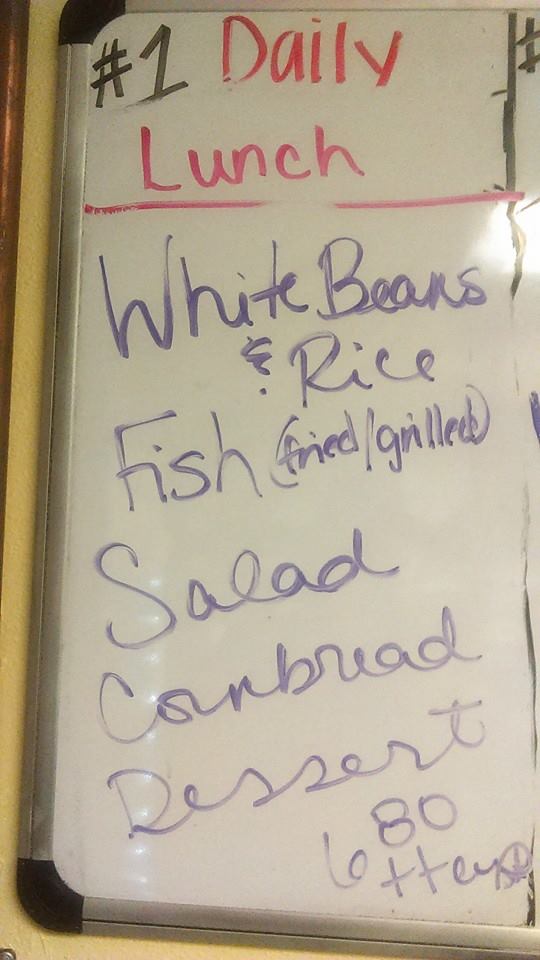 #1 Daily
Lunch
White Beans
& Rice
Fish (fried/grilled)
Salad
Cornbread
Dessert
6 80